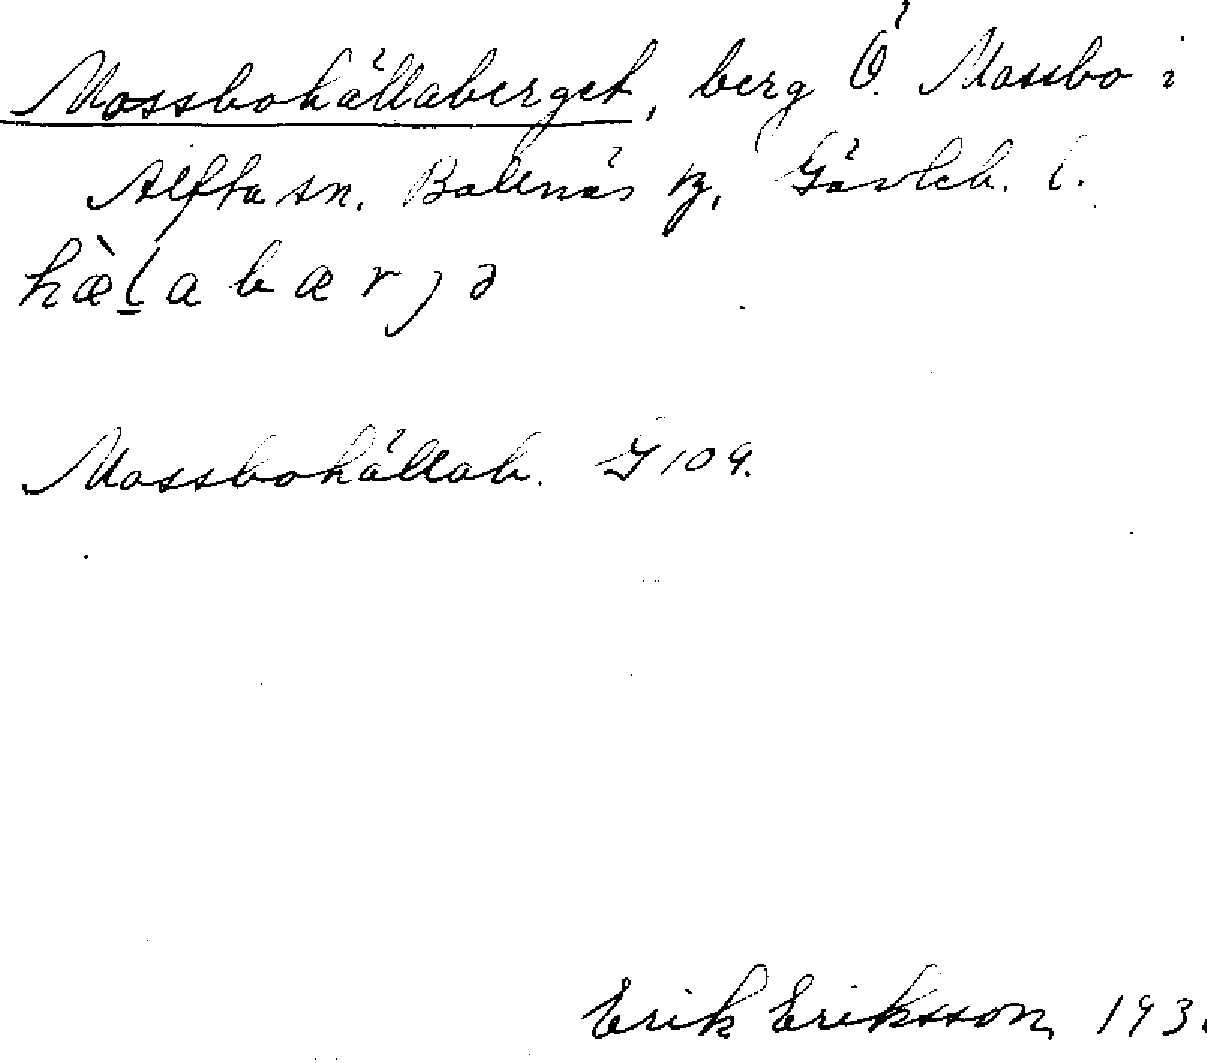 Mossbohällaberget, berg Ö. Mossbo i
Alfta sn. Bollnäs tg, Gävleb. l.
hæ̀l̠abærjə
Mossbohällab. G 109.
Erik Eriksson, 193.